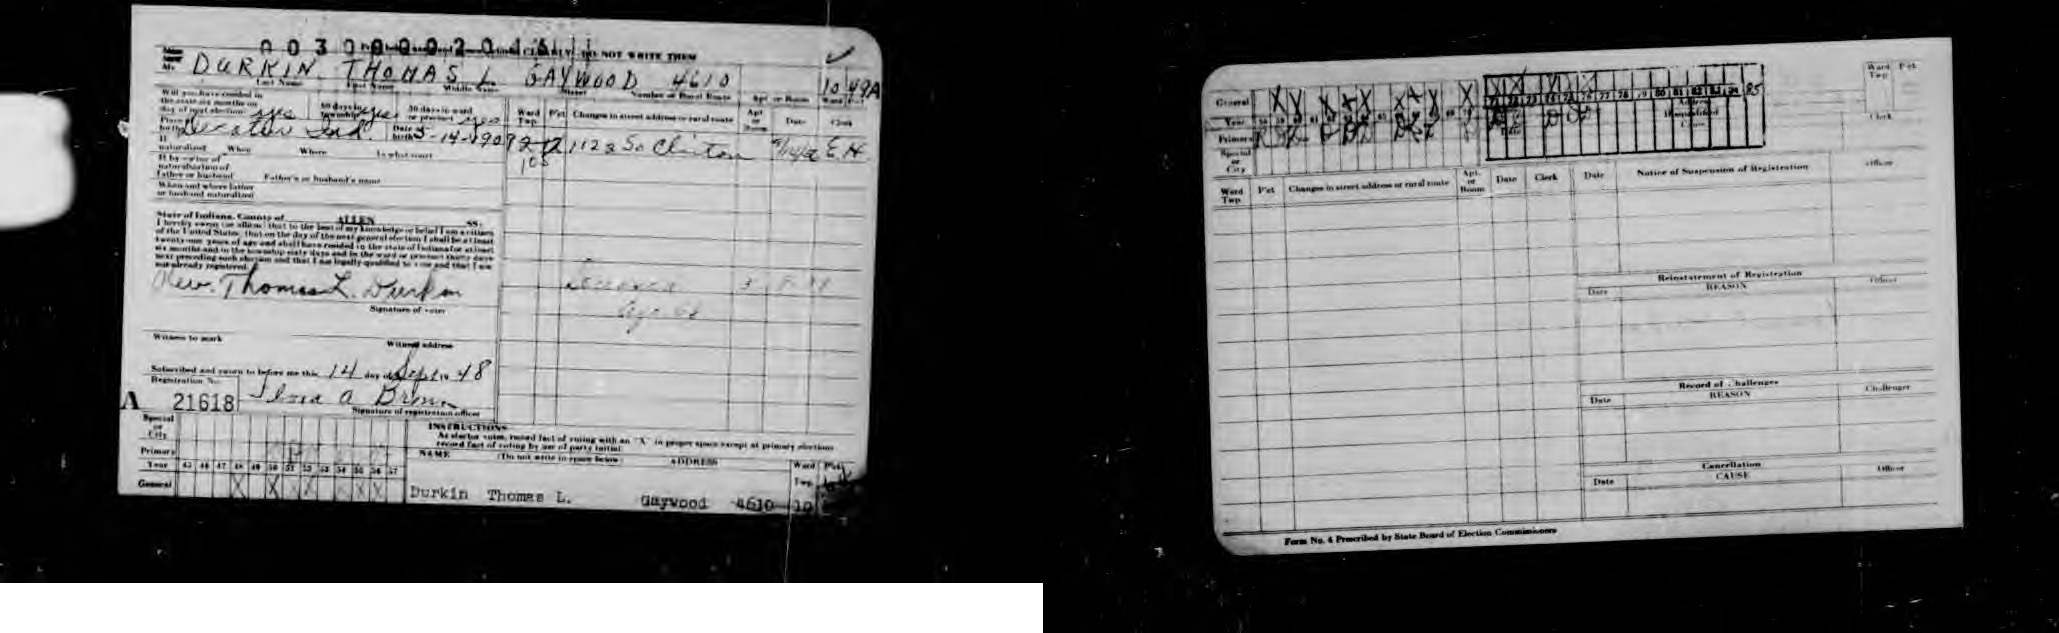 CLEARLY DO NOT WRITE THEM
DURKIN THOMAS L GAYWOOD 4610 10 49A
Last Name First Name Middle Name Street Number or Rural Route Apt. or Room Ward
Will you have resided in
the state six months on
day of next election yes 60 days in township yes 30 days in ward or precinct yes
Ward Twp. P'ct Changes in street address or rural route Apt. or Room Date Clerk
Place of birth Decatur Ind. Date of birth
1123 So Clinton E.H.
105
If naturalized When Where In what court
If by virtue of
naturalization of
father or husband Father's or husband's name
When and where father
or husband naturalized
State of Indiana, County of ALLEN SS:
I hereby swear (or affirm) that to the best of my knowledge or belief I am a citizen
of the United States, that on the day of the next general election I shall be at least
twenty-one years of age and shall have resided in the state of Indiana for at least
six months and in the township sixty days and in the ward or precinct thirty days
next preceding such election and that I am legally qualified to vote and that I am
not already registered.
Rev. Thomas L. Durkin
Signature of voter
Witness to mark Witness address
Subscribed and sworn to before me this 14 day of Sept 19 48
Registration No.
A 21618
Signature of registration officer
Special or City
Primary
Year 45 46 47 48 49 50 51 52 53 54 55 56 57
General X X X X X X
INSTRUCTIONS
As elector votes, record fact of voting with an "X" in proper space except at primary elections
record fact of voting by use of party initial
NAME (Do not write in space below) ADDRESS Ward Twp. P'ct
Durkin Thomas L. Gaywood 4610 10
General
Year
Primary
Special or City
71 72 73 74 75 76 77 78 79 80 81 82 83 84 85
Ward Twp. P'ct
Clerk
Ward Twp. P'ct Changes in street address or rural route Apt. or Room Date Clerk Date Notice of Suspension of Registration Officer
Reinstatement of Registration
Date REASON Officer
Record of Challenges
Date REASON Challenger
Cancellation
Date CAUSE Officer
Form No. 4 Prescribed by State Board of Election Commissioners